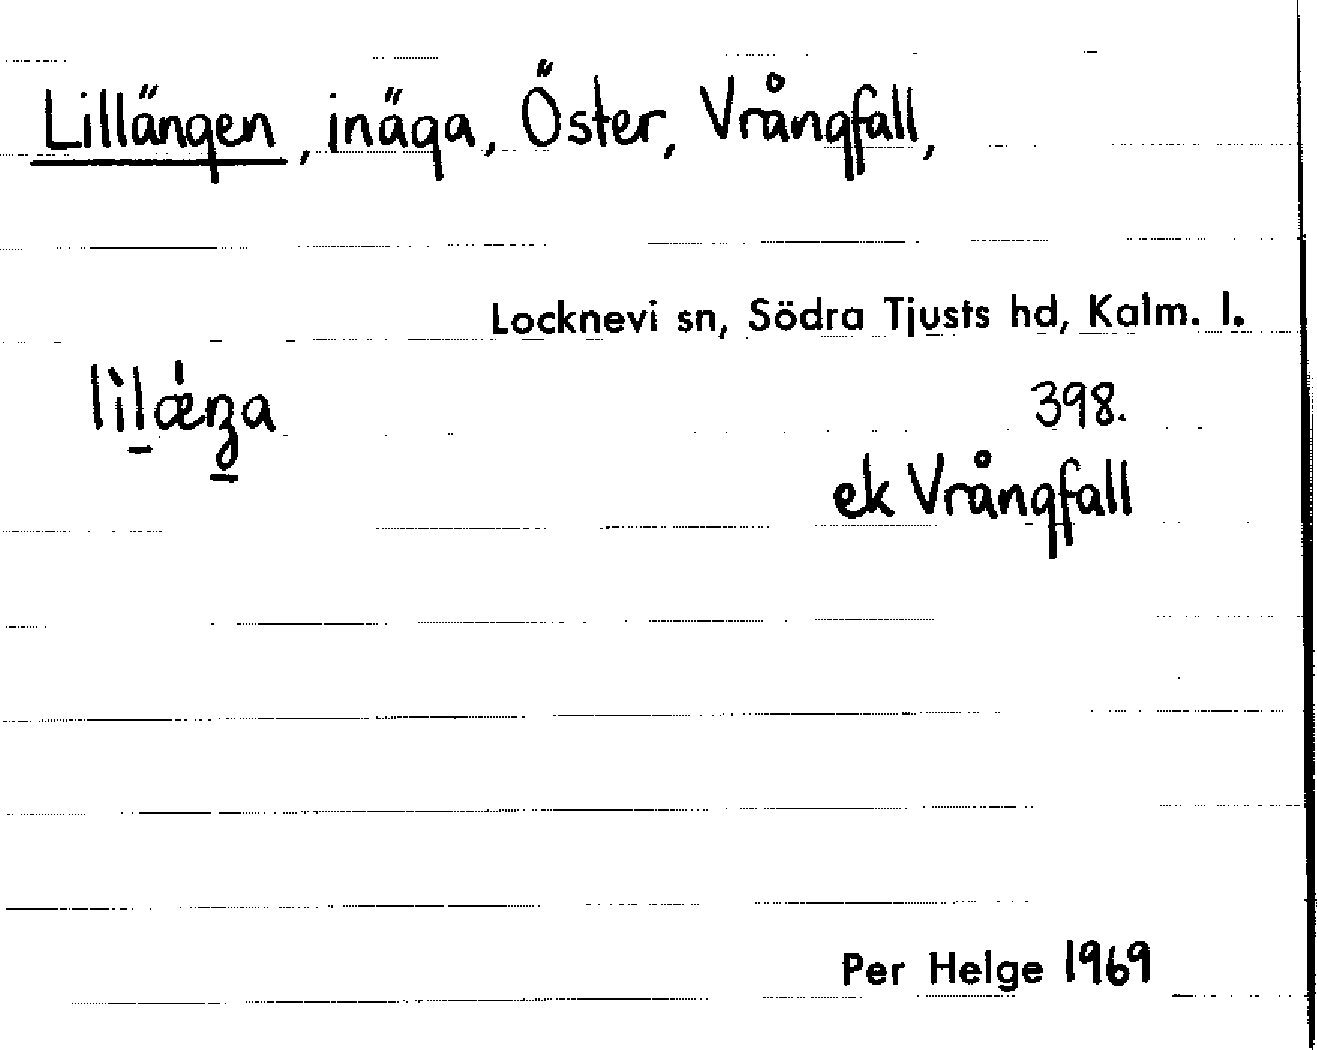 Lillängen, inäga, Öster, Vrångfall,
Locknevi sn, Södra Tjusts hd, Kalm. l.
398.
ek Vrångfall
Per Helge 1969